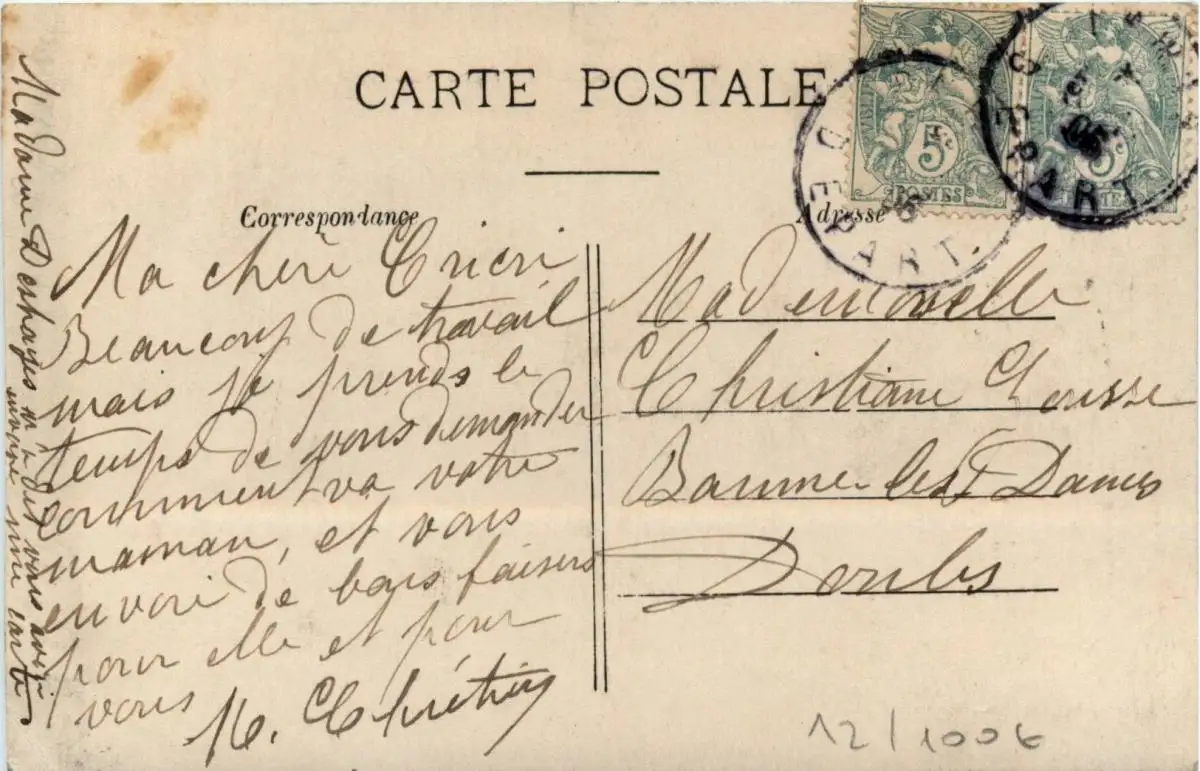 CARTE POSTALE
Correspondance
Adresse
5
POSTES
5
DEPART
DEPART
Ma chère Cricri
Beaucoup de travail
mais je prends le
temps de vous demander
comment va votre
maman, et vous
envoie de bons baisers
pour elle et pour
vous
M. Chrétien
Madame Deshayes m'a dit vous avoir
envoyé une carte
Mademoiselle
Christiane
Baume les Dames
Doubs
12/1006